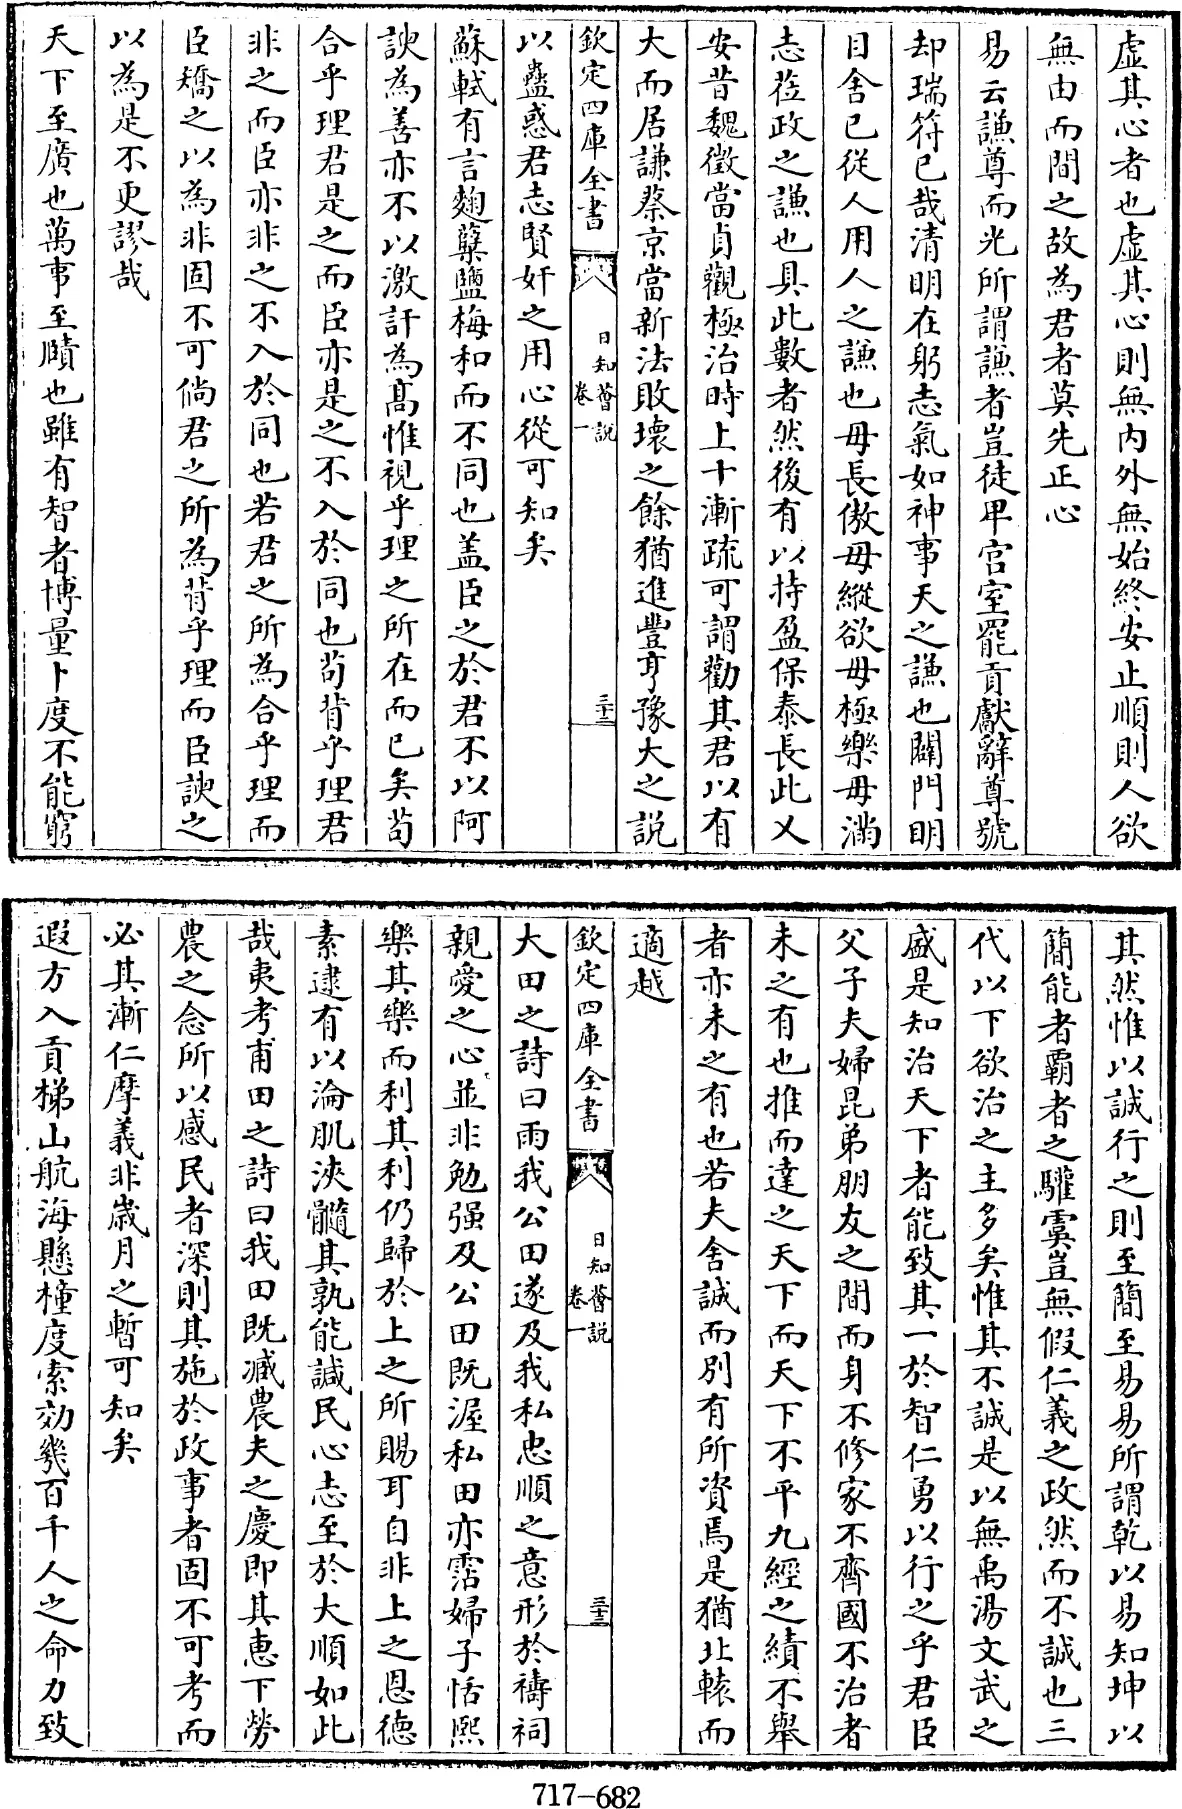 虛其心者也虛其心則無內外無始終安止順則人欲
無由而間之故為君者莫先正心
易云謙尊而光所謂謙者豈徒卑宮室罷貢獻辭尊號
却瑞符已哉清明在躬志氣如神事天之謙也闢門明
目舍已從人用人之謙也毋長傲毋縱欲毋極樂毋滿
志蒞政之謙也具此數者然後有以持盈保泰長此乂
安昔魏徵當貞觀極治時上十漸疏可謂勸其君以有
大而居謙蔡京當新法敗壞之餘猶進豐亨豫大之說
欽定四庫全書
日知薈說
卷一
三十二
以蠱惑君志賢奸之用心從可知矣
蘇軾有言麴糵鹽梅和而不同也盖臣之於君不以阿
諛為善亦不以激訐為高惟視乎理之所在而已矣茍
合乎理君是之而臣亦是之不入於同也茍背乎理君
非之而臣亦非之不入於同也若君之所為合乎理而
臣矯之以為非固不可倘君之所為背乎理而臣諛之
以為是不更謬哉
天下至廣也萬事至賾也雖有智者博量卜度不能窮
其然惟以誠行之則至簡至易易所謂乾以易知坤以
簡能者霸者之驩虞豈無假仁義之政然而不誠也三
代以下欲治之主多矣惟其不誠是以無禹湯文武之
盛是知治天下者能致其一於智仁勇以行之乎君臣
父子夫婦昆弟朋友之間而身不修家不齊國不治者
未之有也推而達之天下而天下不平九經之績不舉
者亦未之有也若夫舍誠而別有所資焉是猶北轅而
適越
欽定四庫全書
日知薈說
卷一
三十三
大田之詩曰雨我公田遂及我私忠順之意形於禱祠
親愛之心並非勉强及公田既渥私田亦霑婦子恬熙
樂其樂而利其利仍歸於上之所賜耳自非上之恩德
素逮有以淪肌浹髓其孰能諴民心志至於大順如此
哉夷考甫田之詩曰我田既臧農夫之慶即其惠下勞
農之念所以感民者深則其施於政事者固不可考而
必其漸仁摩義非歲月之暫可知矣
遐方入貢梯山航海懸橦度索効幾百千人之命力致
717-682